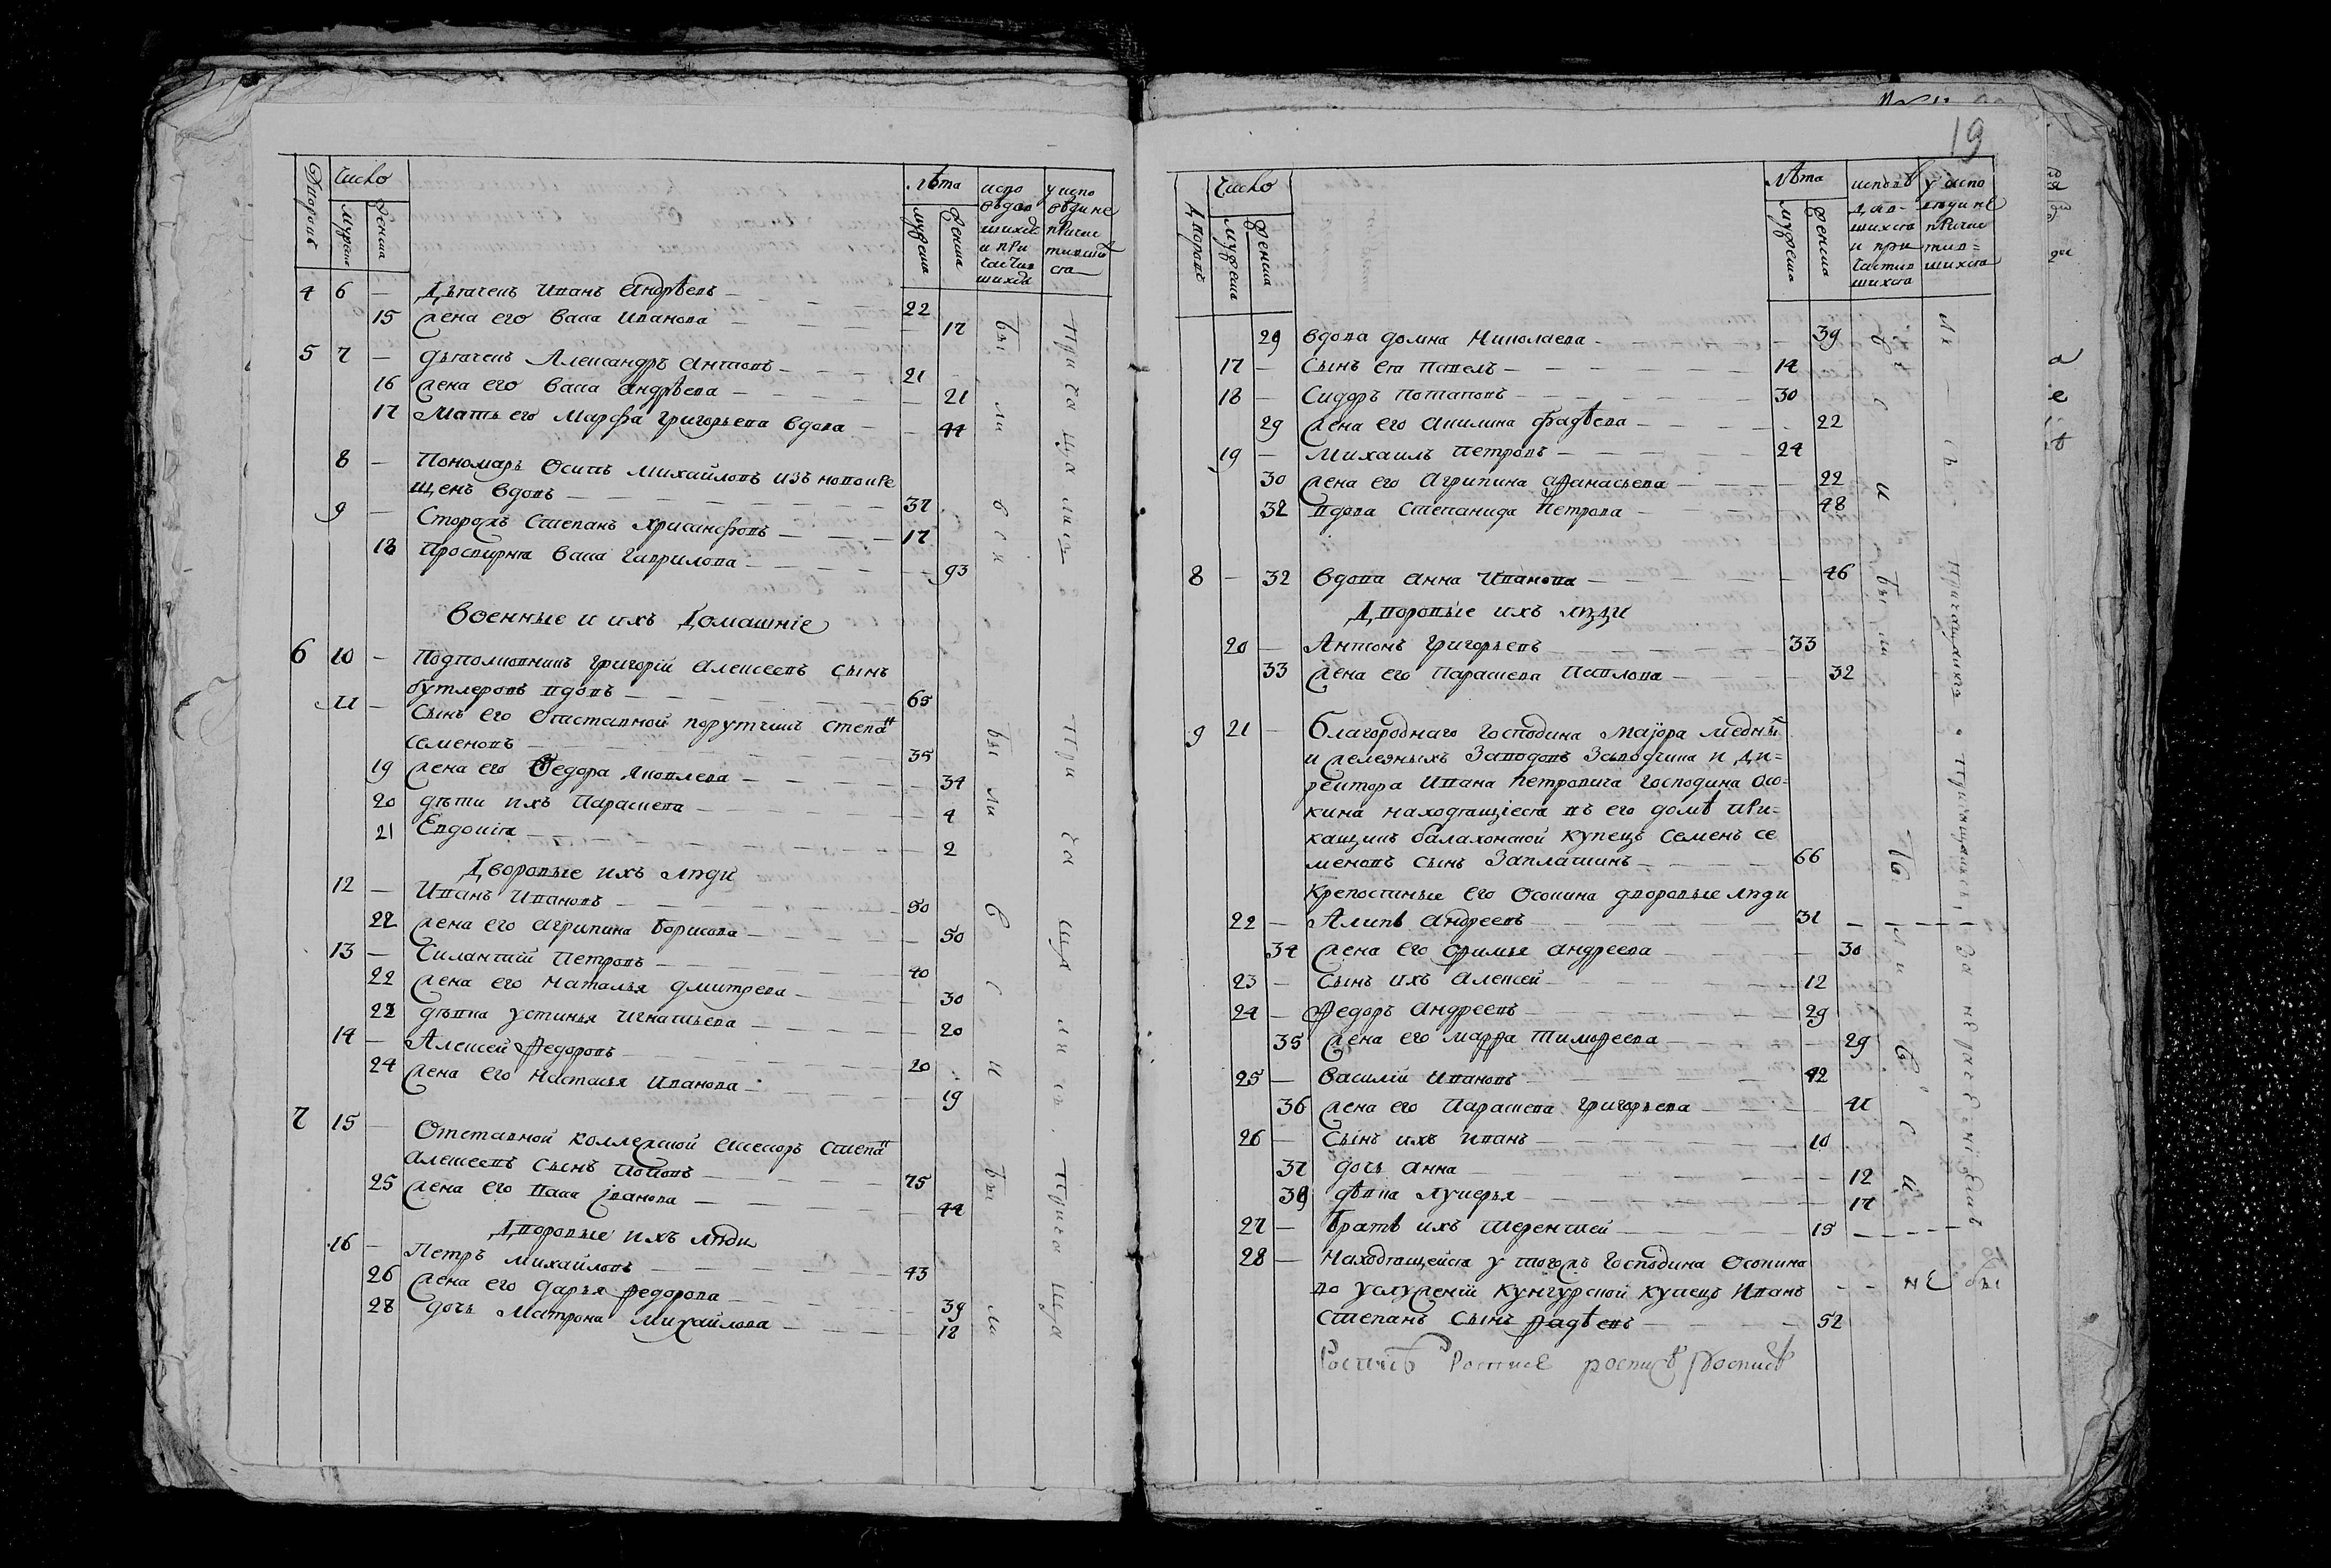 Дворовъ
Число
Мужеска
Женска
Лѣта
мужеска
женска
испо
вѣдав
шихся
и при
частив
шихся
у испо
вѣди не
причас
тивших
ся
4 6 — Дьячекъ Иванъ Андрѣевъ — 22
15 Жена его Васа Иванова — 17
5 7 — Дьячекъ Александръ Антповъ — 21
16 Жена его Васа Андрѣева — 21
17 Мать его Марфа Григорьева вдова — 44
8 — Пономарь Осипъ Михайловъ изъ новокре
щенъ вдовъ — 37
9 — Сторожъ Степанъ Хрисанфовъ — 17
18 Просвирня Васа Гаврилова — 93
Военные и ихъ Домашніе
6 10 — Подполковникъ Григорій Алексеевъ сынъ
бутлеровъ вдовъ — 65
11 — Сынъ его отставной порутчикъ Степанъ
Семеновъ — 35
19 Жена его Федора Яковлева — 34
20 дѣти ихъ Параскева — 4
21 Евдокия — 2
Дворовые ихъ люди
12 — Иванъ Ивановъ — 50
22 Жена его Агрипина Борисова — 50
13 — Силантий Петровъ — 40
22 Жена его Наталья Дмитрева — 30
22 дѣвка Устинья Игнатьева — 20
14 — Алексей Федоровъ — 20
24 Жена его Настасья Иванова — 19
7 15 — Отставной коллежской асессоръ Степанъ
Алексеевъ сынъ Поповъ — 75
25 Жена его Васа Іванова — 44
Дворовые ихъ люди
16 — Петръ Михайловъ — 43
26 Жена его Дарья Федорова — 39
28 дочь Матрона Михайлова — 12
бы ли всѣ
бы ли
всѣ и
бы ли
19
Дворовъ
Число
Мужеска
Женска
Лѣта
мужеска
женска
исповѣ
дав-
шихся
и при
частив
шихся
у испо
вѣди не
причас
тив=
шихся
29 вдова Домна Николаева — 39
17 — Сынъ ея Павелъ — 14
18 — Сидоръ Потаповъ — 30
29 Жена его Акилина Фадѣева — 22
19 — Михаилъ Петровъ — 24
30 Жена его Агрипина Афанасьева — 22
32 вдова Степанида Петрова — 48
8 — 32 Вдова Анна Иванова — 46
Дворовые ихъ люди
20 — Антонъ Григорьевъ — 33
33 Жена его Параскева Павлова — 32
9 21 — Благороднаго Господина Маіора медныхъ
и железныхъ Заводовъ Заводчика и ди=
ректора Ивана Петровича Господина Осо=
кина находящіеся въ его домѣ при=
кащикъ балахонской купецъ Семенъ Се
меновъ сынъ Заплашинъ — 66
Крепостные его Осокина дворовые люди
22 — Алипъ Андреевъ — 31
34 Жена его Фимья Андреева — 30
23 — Сынъ ихъ Алексей — 12
24 — Федоръ Андреевъ — 29
35 Жена его Марфа Тимофеева — 29
25 — Василій Ивановъ — 42
36 Жена его Параскева Григорьева — 41
26 — Сынъ ихъ Иванъ — 10
37 дочь Анна — 12
38 дѣвка Лукерья — 17
27 — Братъ ихъ Терентей — 15
28 — Находящейся у тогожъ Господина Осокина
во услуженіи Кунгурской купецъ Иванъ
Степанъ сынъ Фадѣевъ — 52
не бы
Роспись Роспись роспись Роспись